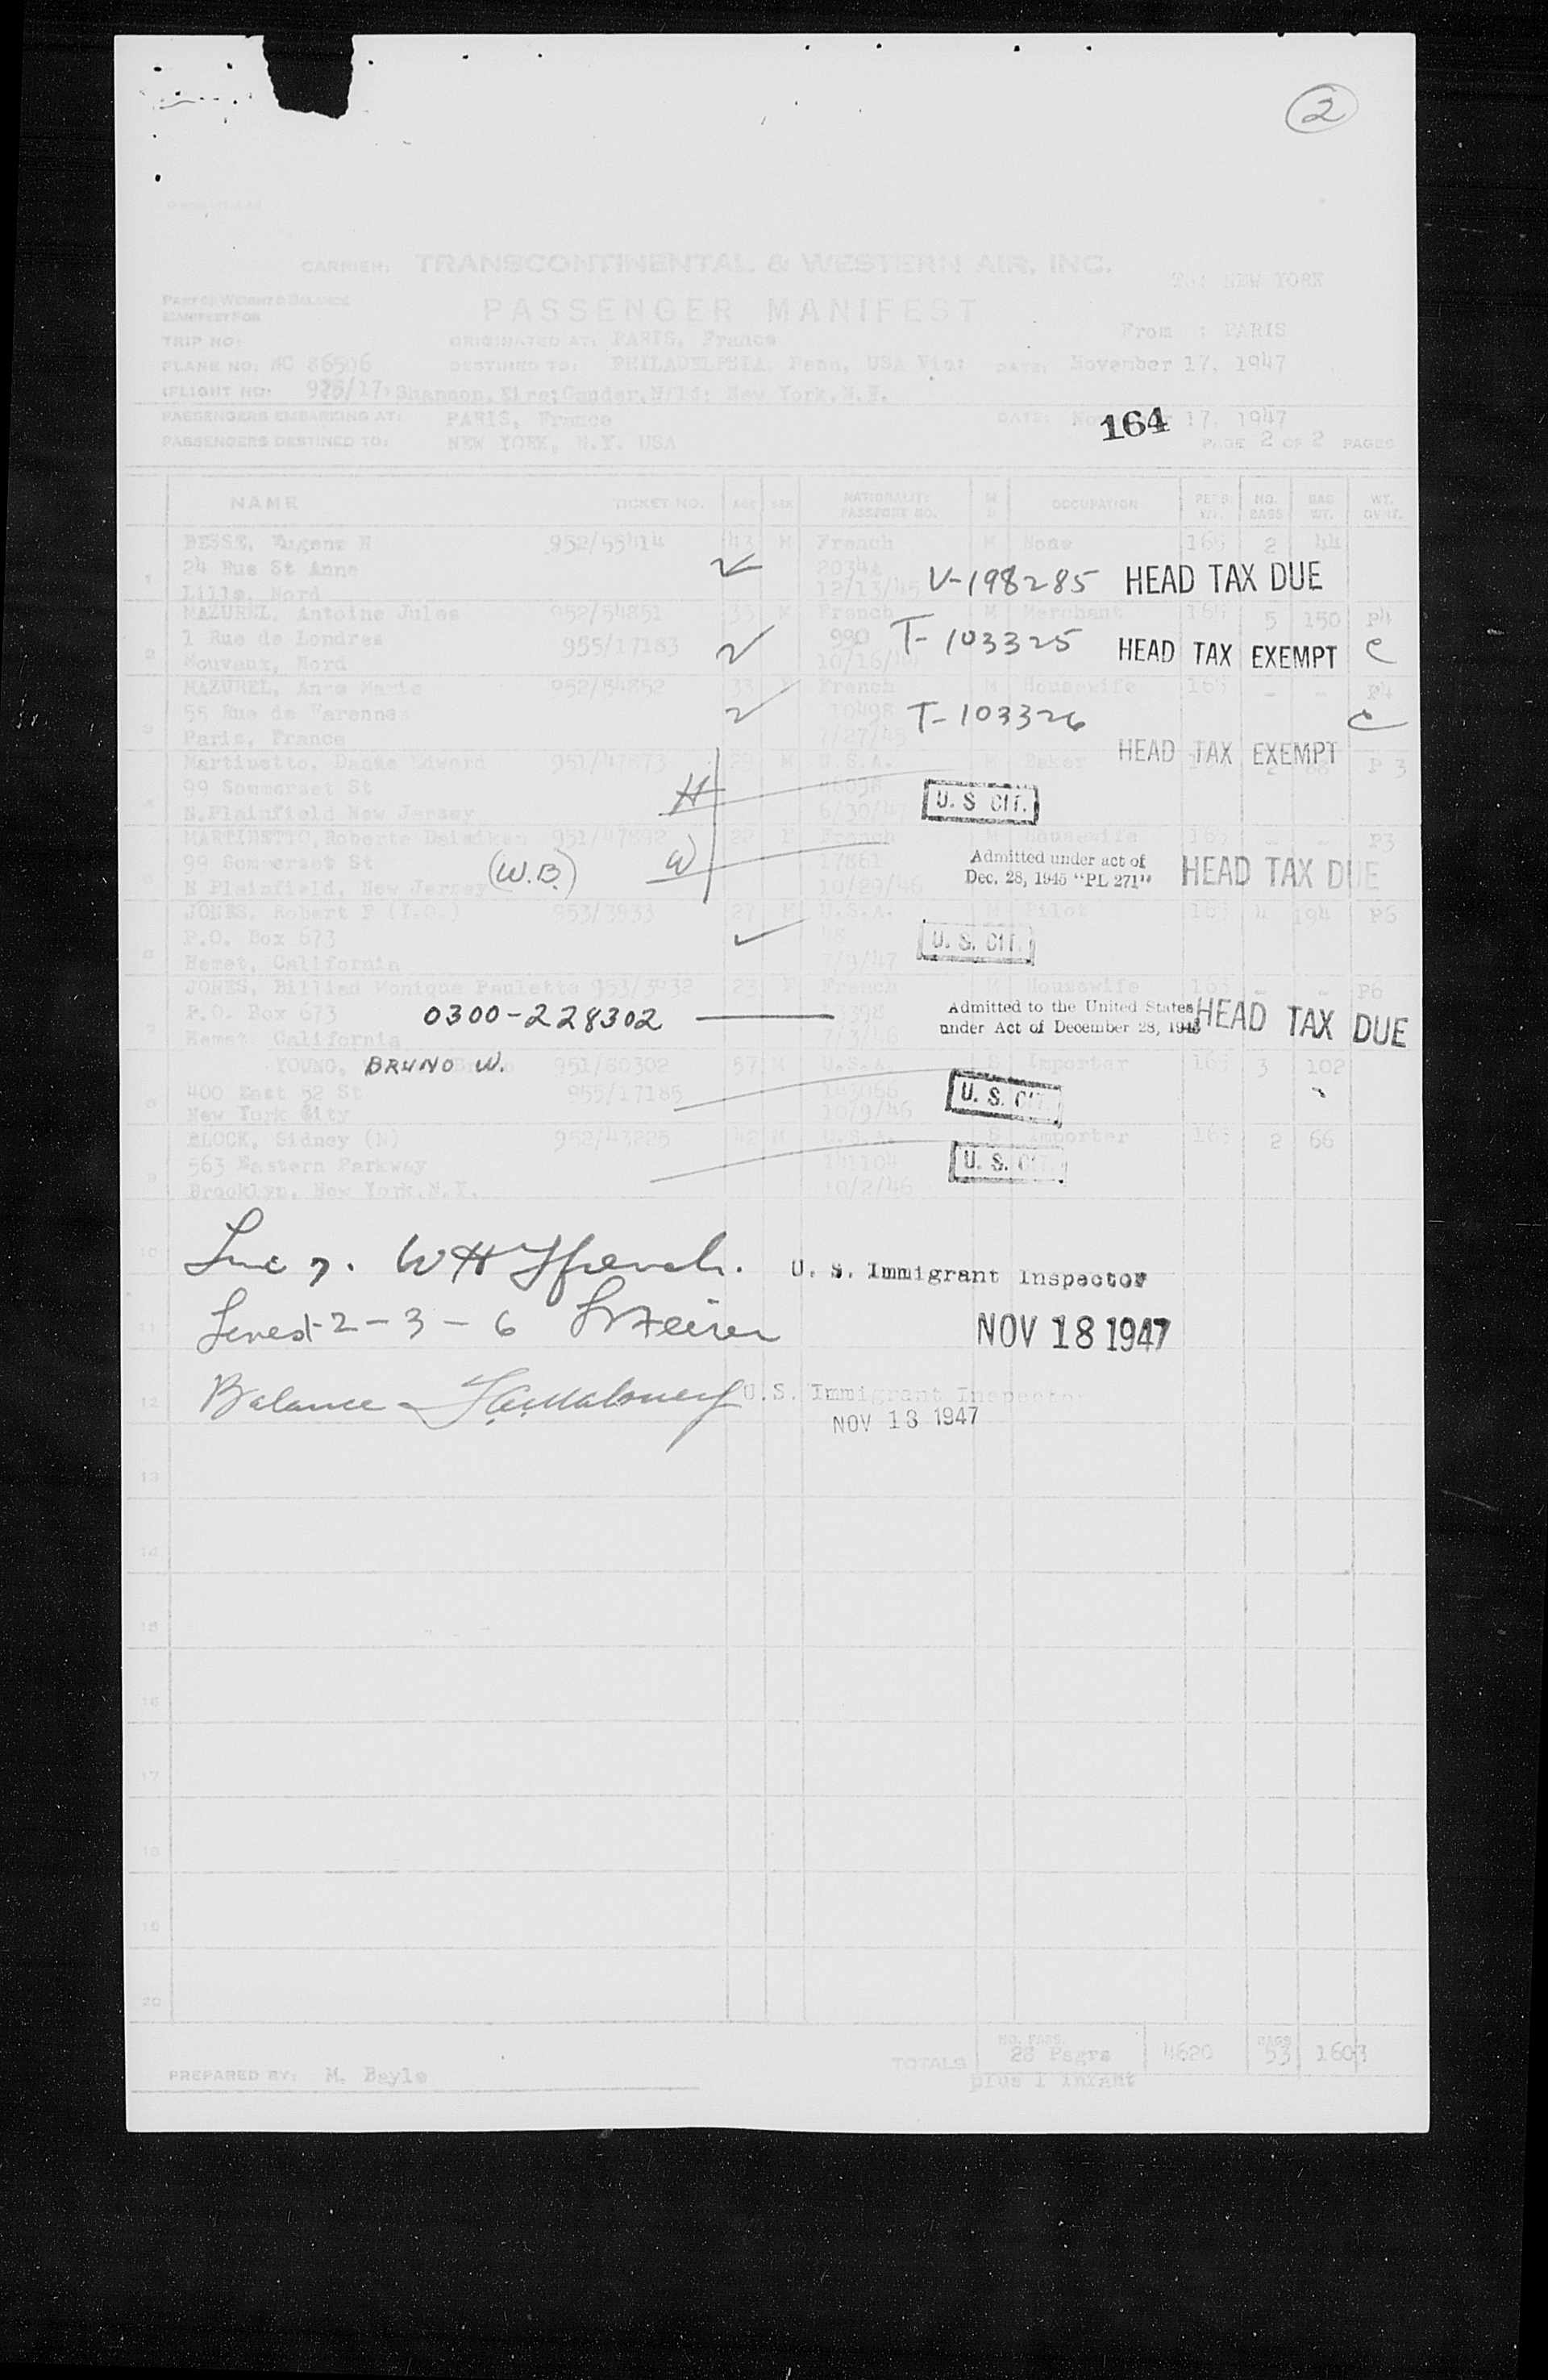 2
CARRIER: TRANSCONTINENTAL & WESTERN AIR, INC.
To: NEW YORK
PART OF WEIGHT & BALANCE
MANIFEST FOR
PASSENGER MANIFEST
From : PARIS
TRIP NO: ORIGINATED AT: PARIS, France
PLANE NO: NC 86506 DESTINED TO: PHILADELPHIA, Penn, USA Via: DATE: November 17, 1947
FLIGHT NO: Shannon, Eire; Gander, Nfld; New York, N.Y.
PASSENGERS EMBARKING AT: PARIS, France DATE: November 17, 1947
164
PASSENGERS DESTINED TO: NEW YORK, N.Y. USA PAGE 2 OF 2 PAGES
NAME TICKET NO. AGE SEX NATIONALITY PASSPORT NO. M S OCCUPATION PERS. WT. NO. BAGS BAG WT. WT. OV-INF.
BESSE, Eugene H 952/55414 43 M French M None 165 2 44
1 24 Rue St Anne V-198285 HEAD TAX DUE
Lille, Nord 12/13/45
MAZUREL, Antoine Jules 952/54851 33 M French M Merchant 165 5 150 P4
2 1 Rue de Londres 955/17183 990 T-103325 HEAD TAX EXEMPT C
Mouvaux, Nord
MAZUREL, Anne Marie 952/54852 33 French M Housewife 165 - - P4
3 55 Rue de Varennes 10498 T-103326 C
Paris, France 7/27/45 HEAD TAX EXEMPT
Martinetto, Edward 951/47873 29 M U.S.A. M Baker P 3
4 99 Sommerset St H U. S CIT.
N.Plainfield New Jersey 6/30/47
MARTINETTO, Roberte 951/47892 22 F French M Housewife 165 - - P3
5 99 Sommerset St (W.B.) W 17861 Admitted under act of Dec. 28, 1945 "PL 271" HEAD TAX DUE
N Plainfield, New Jersey 10/29/46
JONES, Robert F 953/3933 27 M U.S.A. M Pilot 165 4 194 P6
6 P.O. Box 673 U. S. CIT.
Hemet, California
JONES, Monique Pauletta 953/3932 23 F French M Housewife 165 - - P6
7 P.O. Box 673 0300-228302 13398 Admitted to the United States under Act of December 28, 1945 HEAD TAX DUE
Hemet California 7/3/46
YOUNG, BRUNO W. 951/80302 57 M U.S.A. S Importer 165 3 102
8 400 East 52 St 955/17185 U. S. CIT.
New York City 10/9/46
BLOCK, Sidney (N) 952/43225 42 M U.S.A. S Importer 165 2 66
9 563 Eastern Parkway 141104 U. S. CIT.
Brooklyn, New York, N.Y. 10/2/46
10 Line 7. U. S. Immigrant Inspector
11 2-3-6 NOV 18 1947
12 Balance - U.S. Immigrant Inspector
NOV 18 1947
13
14
15
16
17
18
19
20
TOTALS NO. PASS. 28 Psgrs 4620 BAGS 53 1603
plus 1 Infant
PREPARED BY: M. Bayle